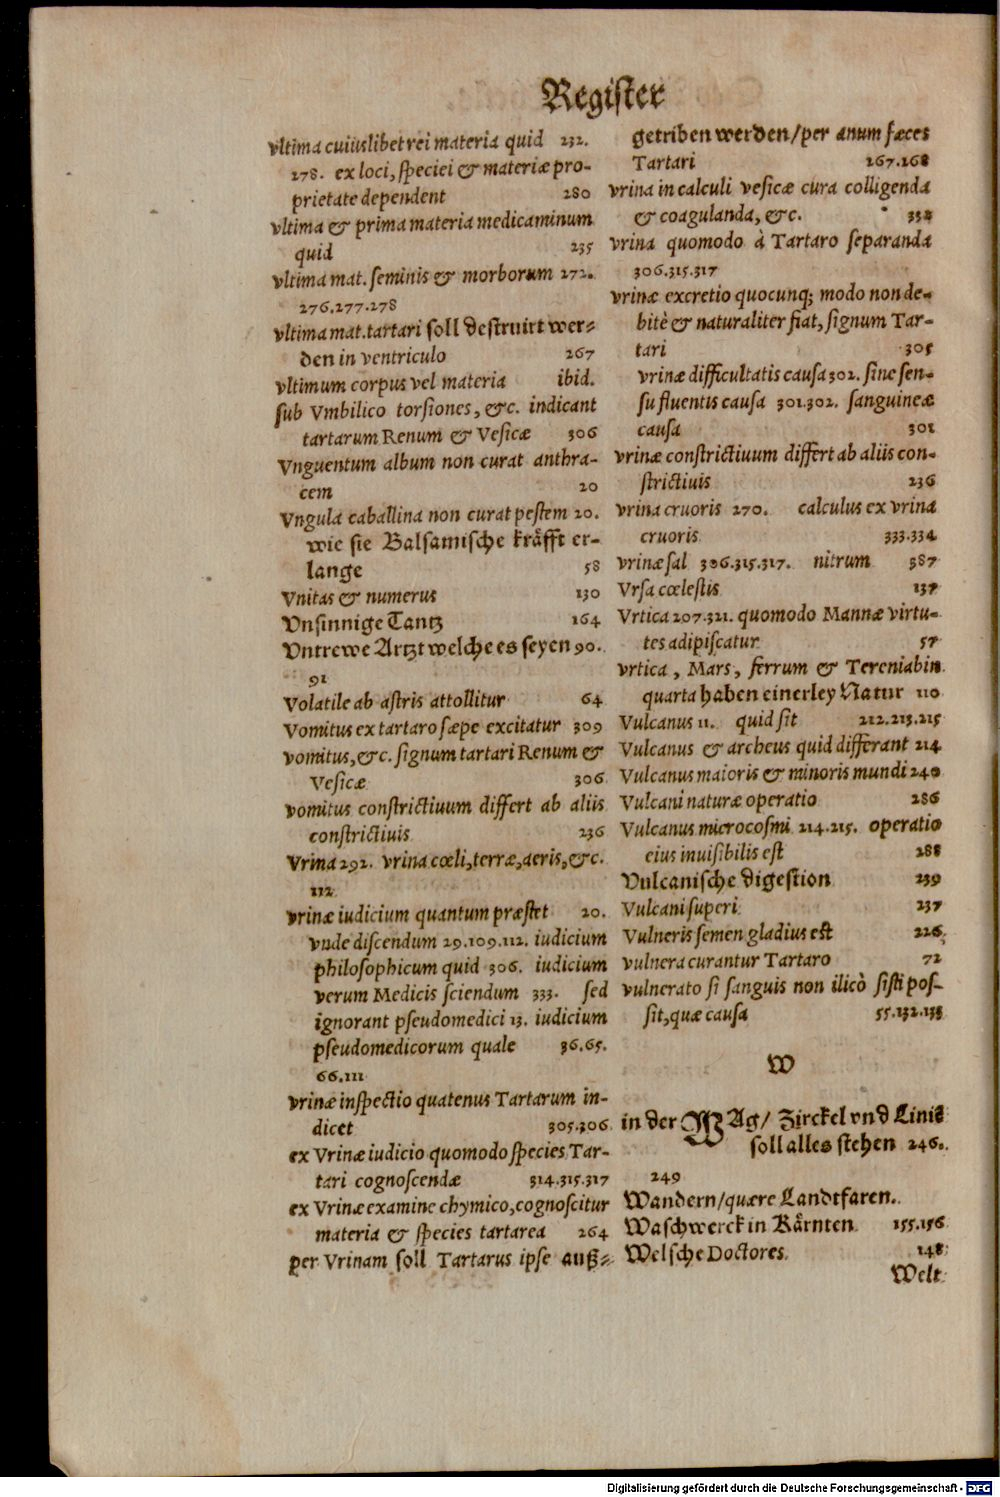 Register
vltima cuiuslibet rei materia quid 232.
278. ex loci, speciei & materiæ pro-
prietate dependent 280
vltima & prima materia medicaminum
quid 235
vltima mat. seminis & morborum 272.
276.277.278
vltima mat. tartari soll destruirt wer-
den in ventriculo 267
vltimum corpus vel materia ibid.
sub Vmbilico torsiones, &c. indicant
tartarum Renum & Vesicæ 306
Vnguentum album non curat anthra-
cem 20
Vngula caballina non curat pestem 20.
wie sie Balsamische kräfft er-
lange 58
Vnitas & numerus 130
Vnsinnige Tantz 164
Vntrewe Artzt welche es seyen 90.
91
Volatile ab astris attollitur 64
Vomitus ex tartaro sæpe excitatur 309
vomitus, &c. signum tartari Renum &
Vesicæ 306
vomitus constrictiuum differt ab aliis
constrictiuis 236
Vrina 292. vrina cœli, terræ, aeris, &c.
112
vrinæ iudicium quantum præstet 20.
vnde discendum 29.109.112. iudicium
philosophicum quid 306. iudicium
verum Medicis sciendum 333. sed
ignorant pseudomedici 13. iudicium
pseudomedicorum quale 36.65.
66.111
vrinæ inspectio quatenus Tartarum in-
dicet 305.306
ex Vrinæ iudicio quomodo species Tar-
tari cognoscendæ 314.315.317
ex Vrinæ examine chymico, cognoscitur
materia & species tartarea 264
per Vrinam soll Tartarus ipse auß-
getriben werden/per anum fæces
Tartari 267.268
vrina in calculi vesicæ cura colligenda
& coagulanda, &c. 332
vrina quomodo à Tartaro separanda
306.315.317
vrinæ excretio quocunq; modo non de-
bitè & naturaliter fiat, signum Tar-
tari 305
vrinæ difficultatis causa 302. sine sen-
su fluentis causa 301.302. sanguineæ
causa 301
vrinæ constrictiuum differt ab aliis con-
strictiuis 236
vrina cruoris 270. calculus ex vrina
cruoris 333.334
vrinæ sal 306.315.317. nitrum 387
Vrsa cœlestis 137
Vrtica 207.321. quomodo Mannæ virtu-
tes adipiscatur 57
vrtica, Mars, ferrum & Tereniabin
quarta haben einerley Natur 110
Vulcanus 11. quid sit 212.213.215
Vulcanus & archeus quid differant 214
Vulcanus maioris & minoris mundi 240
Vulcani naturæ operatio 286
Vulcanus microcosmi 214.215. operatio
eius inuisibilis est 288
Vulcanische digestion 239
Vulcani superi 237
Vulneris semen gladius est 226
vulnera curantur Tartaro 72
vulnerato si sanguis non ilicò sisti pos-
sit, quæ causa 55.132.133
W
in der WAg/ Zirckel vnd Linie
soll alles stehen 246.
249
Wandern/quære Landtfaren.
Waschwerck in Kärnten 155.156
Welsche Doctores 148
Welt
Digitalisierung gefördert durch die Deutsche Forschungsgemeinschaft - DFG